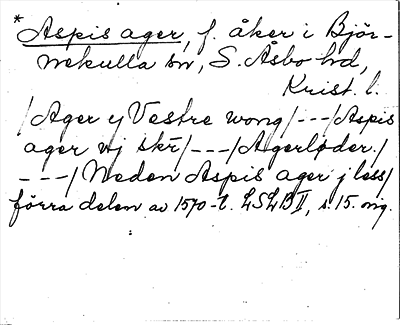 * Aspis ager, f. åker i Björ-
nekulla sn, S. Åsbo hd,
Krist. l.
/Ager y Vestre wong/---/Aspis
ager vj skr/---/Agerløder./
---/Neden Aspis ager j less/
förra delen av 1570-t. LSLB II, s. 15. orig.